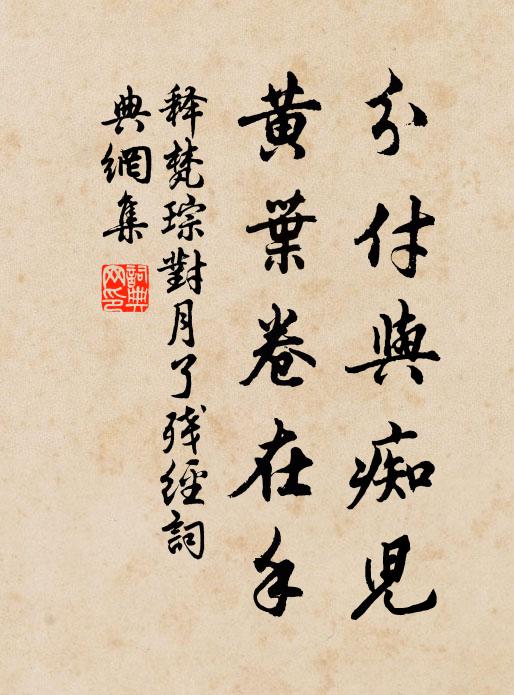 分付與痴兒
黃葉卷在手
释梵琮對月了残經詞
典網集
詞典
网印